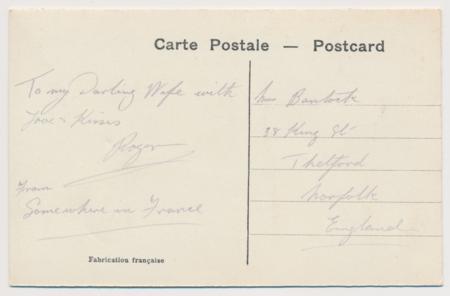 Carte Postale — Postcard
To my Darling Wife with
Love & Kisses
Roger
From
Somewhere in France
Fabrication française
Mrs Bantock
38 King St
Thetford
Norfolk
England